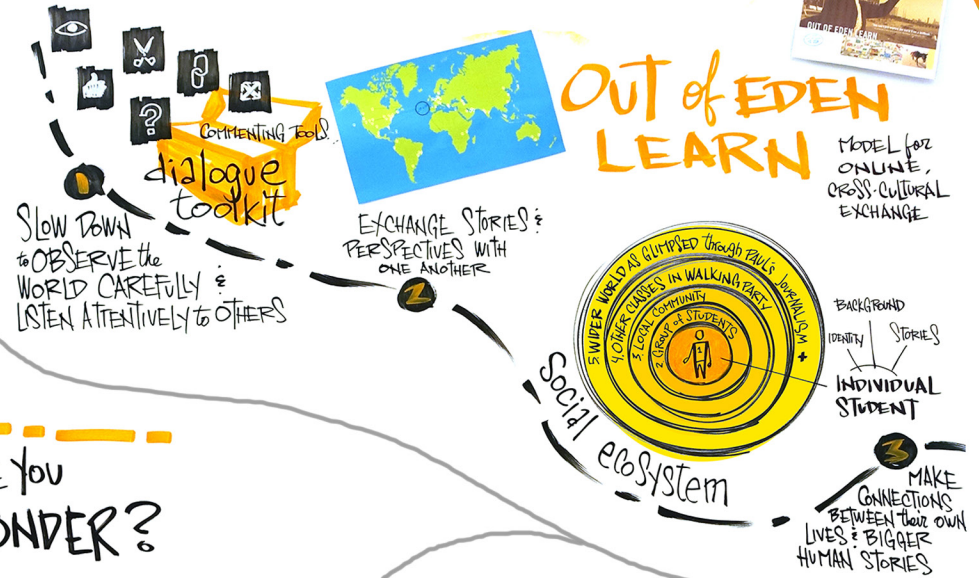 OUT OF EDEN LEARN
OUT of EDEN
LEARN
MODEL for
ONLINE,
CROSS-CULTURAL
EXCHANGE
?
COMMENTING TOOLS
dialogue
toolkit
1
SLOW DOWN
to OBSERVE the
WORLD CAREFULLY &
LISTEN ATTENTIVELY to OTHERS
EXCHANGE STORIES &
PERSPECTIVES WITH
ONE ANOTHER
2
5 WIDER WORLD AS GLIMPSED through PAUL'S JOURNALISM +
4. OTHER CLASSES IN WALKING PARTY
3 LOCAL COMMUNITY
2 GROUP of STUDENTS
1
BACKGROUND
IDENTITY
STORIES
INDIVIDUAL
STUDENT
Social ecosystem
3
MAKE
CONNECTIONS
BETWEEN their OWN
LIVES & BIGGER
HUMAN STORIES
YOU
ONDER?